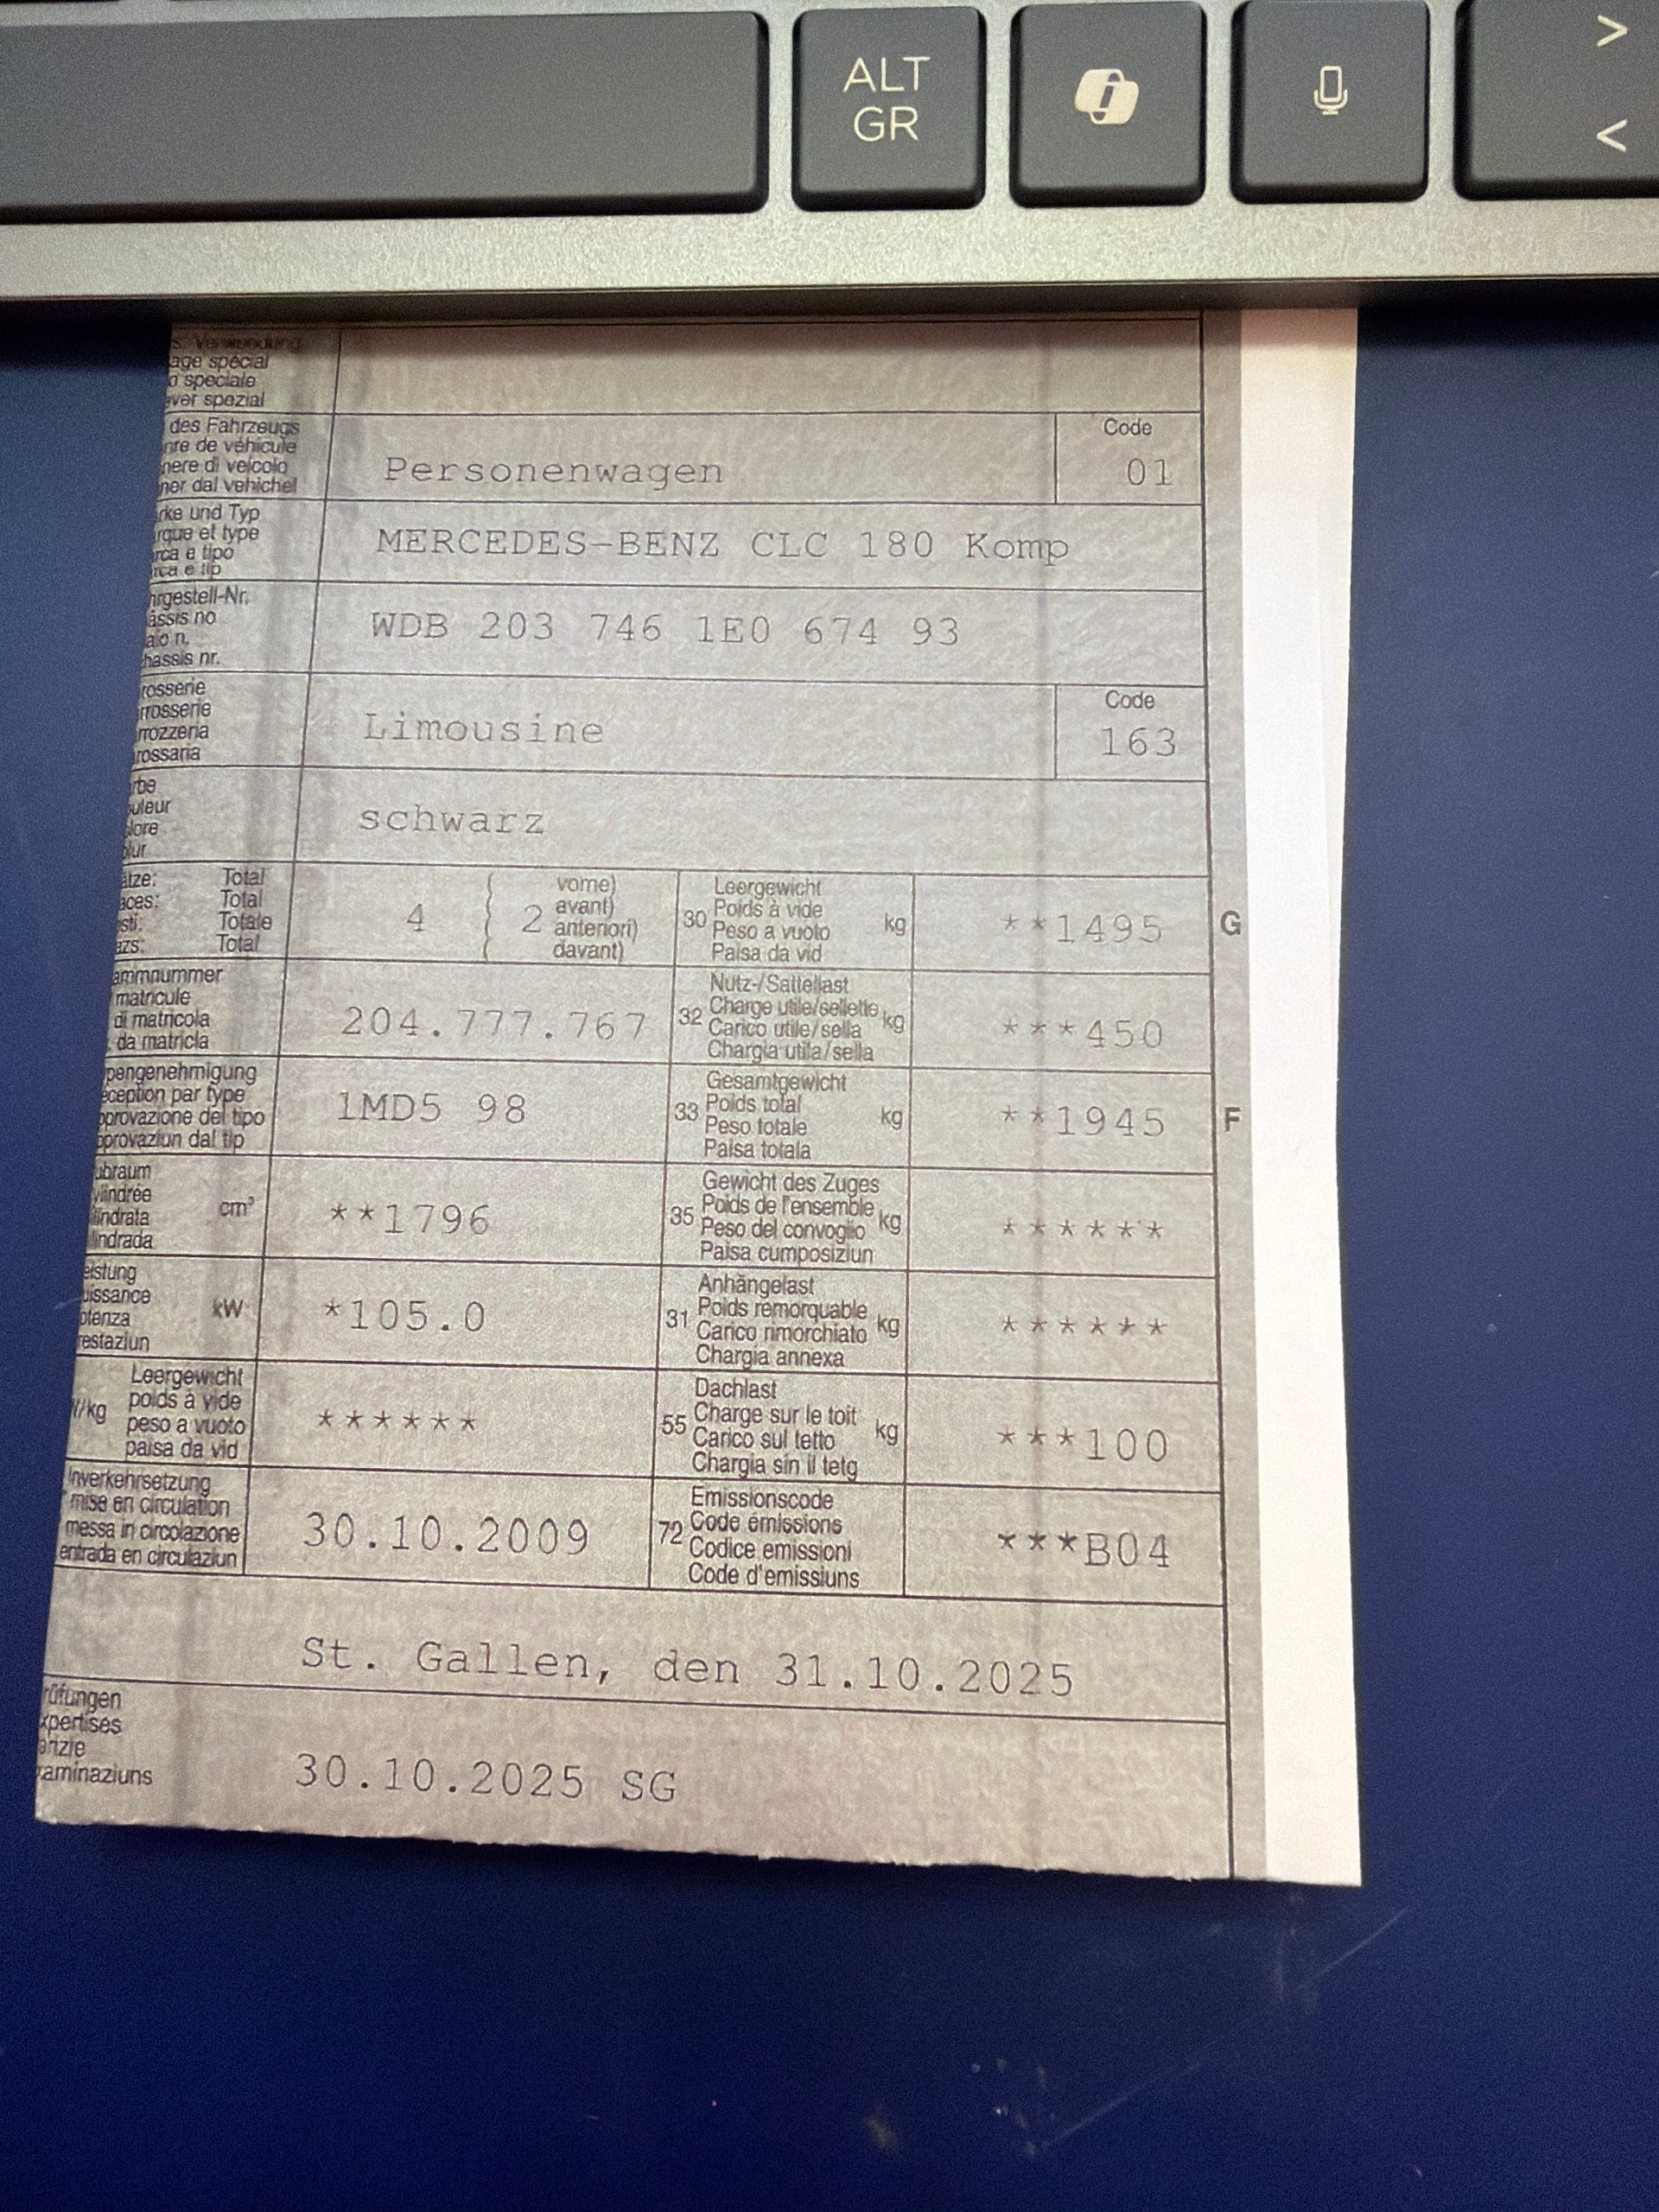 ALT
GR
>
<
s. Verwendung
age spécial
o speciale
ver spezial
des Fahrzeugs
nre de véhicule
nere di veicolo
ner dal vehichel
Personenwagen
Code
01
rke und Typ
rque et type
rca e tipo
rca e tip
MERCEDES-BENZ CLC 180 Komp
hrgestell-Nr.
âssis no
aio n.
hassis nr.
WDB 203 746 1E0 674 93
rosserie
rrosserie
rrozzeria
rossaria
Limousine
Code
163
rbe
uleur
lore
olur
schwarz
ätze: Total
aces: Total
sti: Totale
azs: Total
4 { 2
vorne)
avant)
anteriori)
davant)
30 Leergewicht
Poids à vide
Peso a vuoto
Paisa da vid
kg
**1495
G
ammnummer
matricule
di matricola
da matricla
204.777.767
32 Nutz-/Sattellast
Charge utile/sellette
Carico utile/sella
Chargia utila/sella
kg
***450
pengenehmigung
ception par type
provazione del tipo
provaziun dal tip
1MD5 98
33 Gesamtgewicht
Poids total
Peso totale
Paisa totala
kg
**1945
F
ubraum
ylindrée
lindrata
lindrada
cm³
**1796
35 Gewicht des Zuges
Poids de l'ensemble
Peso del convoglio
Paisa cumposiziun
kg
******
eistung
uissance
otenza
restaziun
kW
*105.0
31 Anhängelast
Poids remorquable
Carico rimorchiato
Chargia annexa
kg
******
/kg
Leergewicht
poids à vide
peso a vuoto
paisa da vid
******
55 Dachlast
Charge sur le toit
Carico sul tetto
Chargia sin il tetg
kg
***100
Inverkehrsetzung
mise en circulation
messa in circolazione
entrada en circulaziun
30.10.2009
72 Emissionscode
Code émissions
Codice emissioni
Code d'emissiuns
***B04
St. Gallen, den 31.10.2025
rüfungen
xpertises
anzie
aminaziuns
30.10.2025 SG